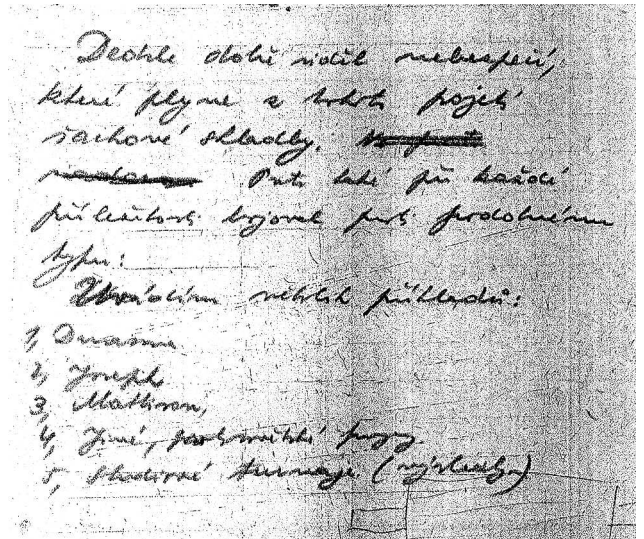 Dedrle dobře viděl nebezpečí,
které plyne z tohoto pojetí
šachové skladby.
Proto také při každé
příležitosti bojoval proti podobnému
typu:
Uvádím několik příkladů:
1,
2, Joseph
3, Mattison,
4, Jiné,
5, Studiové turnaje (výsledky)